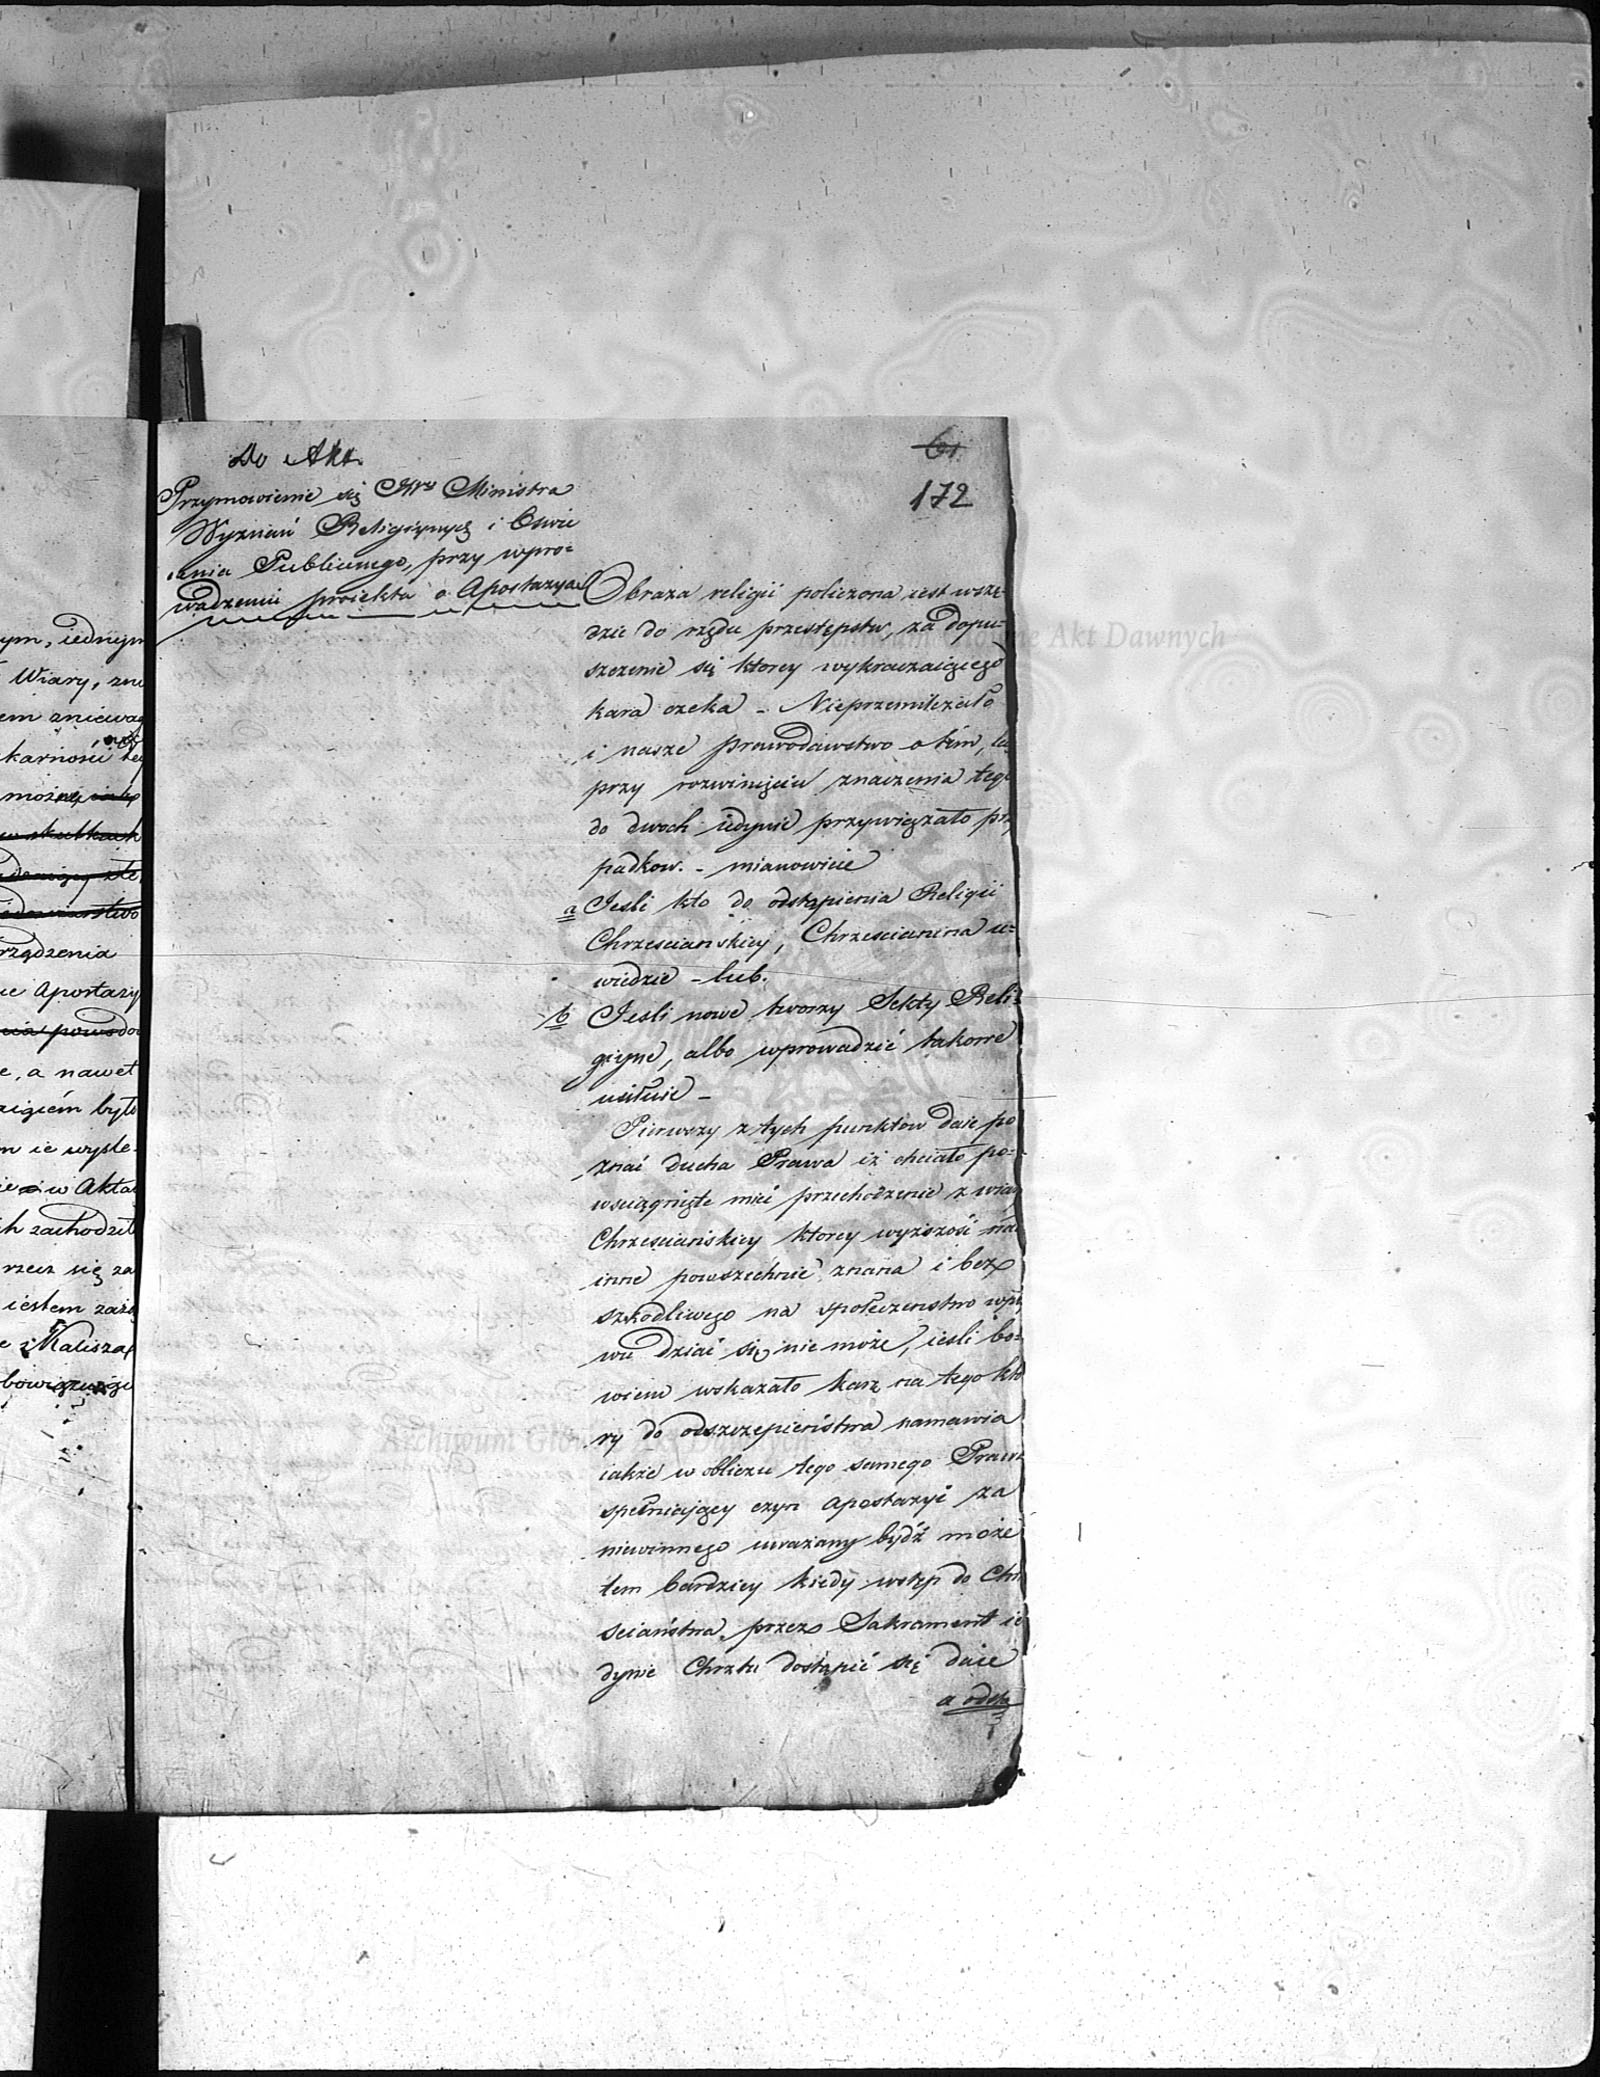 ym, iednym
Wiary, znie
em zniewag
karności tey
można
w skutkach
rządzenia
ie Apostazy
powodo
e, a nawet
aigiém było
m ie wyśle-
w Akta
h zachodził
rzecz się za
iestem
Kalisza
Do Akt.
61
172
Przymowienie się JW Ministra
Wyznań Religiynych i Oświe
cenia Publicznego, przy wpro=
wadzeniu proiektu o Apostazyach
Obraza religii policzona iest wszę-
dzie do rzędu przestępstw, za dopu-
szczenie się ktorey wykraczaiącego
kara czeka - Nieprzemilczało
i nasze prawodawstwo o tém,
przy rozwinięciu znaczenia tego
do dwoch iedynie przywięzało przy
padkow. - mianowicie
a Jeśli kto do odstąpienia Religii
Chrześciańskiey, Chrześcianina u=
wiedzie - lub.
b Jeśli nowe tworzy Sekty Reli=
giyne, albo wprowadzić takowe
usiłuie -
Pierwszy z tych punktow daie po
znać ducha Prawa iż chciało po=
wsciągnięte mieć przechodzenie z wiary
Chrześciańskiey ktorey wyższość nad
inne powszechnie znana i bez
szkodliwego na społeczeństwo wpły
wu dziać się nie może, ieśli bo=
wiem wskazało karę na tego któ
ry do odszczepieństwa namawia
iakże w obliczu tego samego Prawa
spełniaiący czyn apostazyi za
niewinnego uważany bydź może
tem bardziey kiedy wstęp do Chrze
sciaństwa, przez Sakrament ie
dynie Chrztu dostąpić się daie
a odstą
Archiwum Główne Akt Dawnych
Archiwum Główne Akt Dawnych